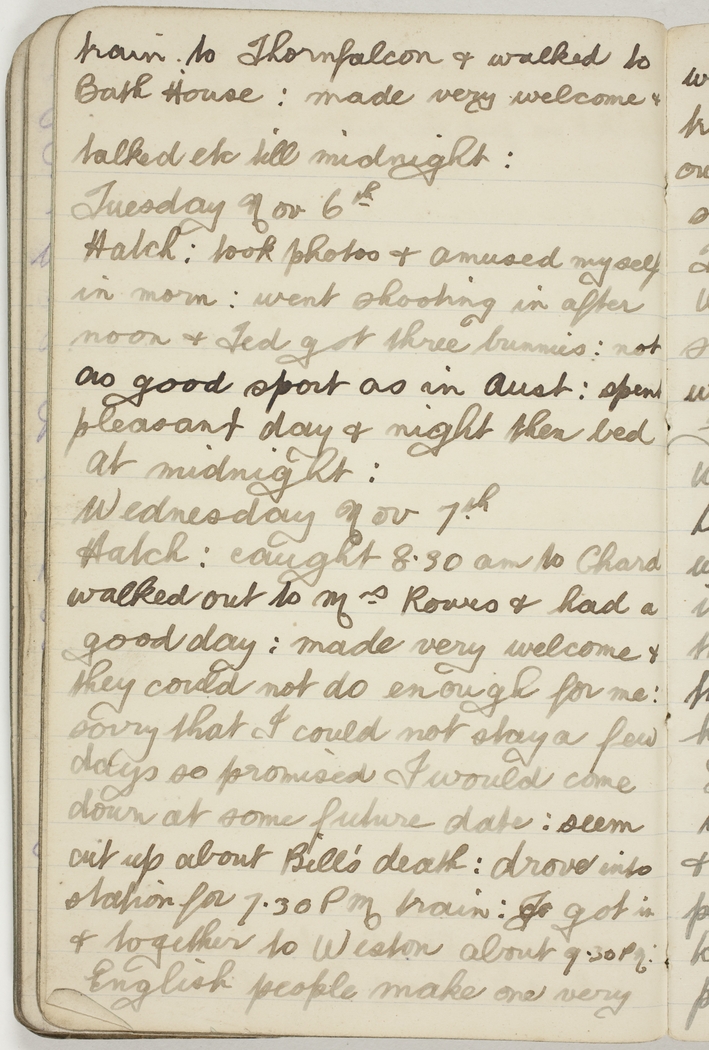 train to Thornfalcon & walked to
Bath House : made very welcome &
talked etc till midnight :
Tuesday Nov 6th
Hatch : took photos & amused myself
in morn : went shooting in after
noon & Ted got three bunnies : not
as good sport as in Aust : spent
pleasant day & night then bed
at midnight :
Wednesday Nov 7th
Hatch : caught 8.30 am to Chard
walked out to Mrs Rowes & had a
good day : made very welcome &
they could not do enough for me :
sorry that I could not stay a few
days so promised I would come
down at some future date : seem
cut up about Bill's death : drove into
station for 7.30 PM train : got in
& together to Weston about 9.30 PM :
English people make one very